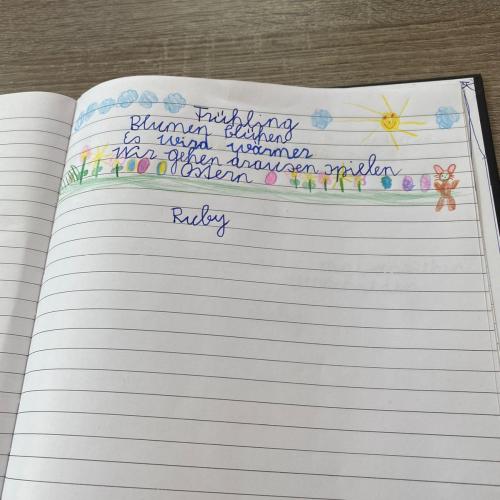 Frühling
Blumen blühen
Es wird wärmer
Wir gehen drausen spielen
Ostern
Ruby